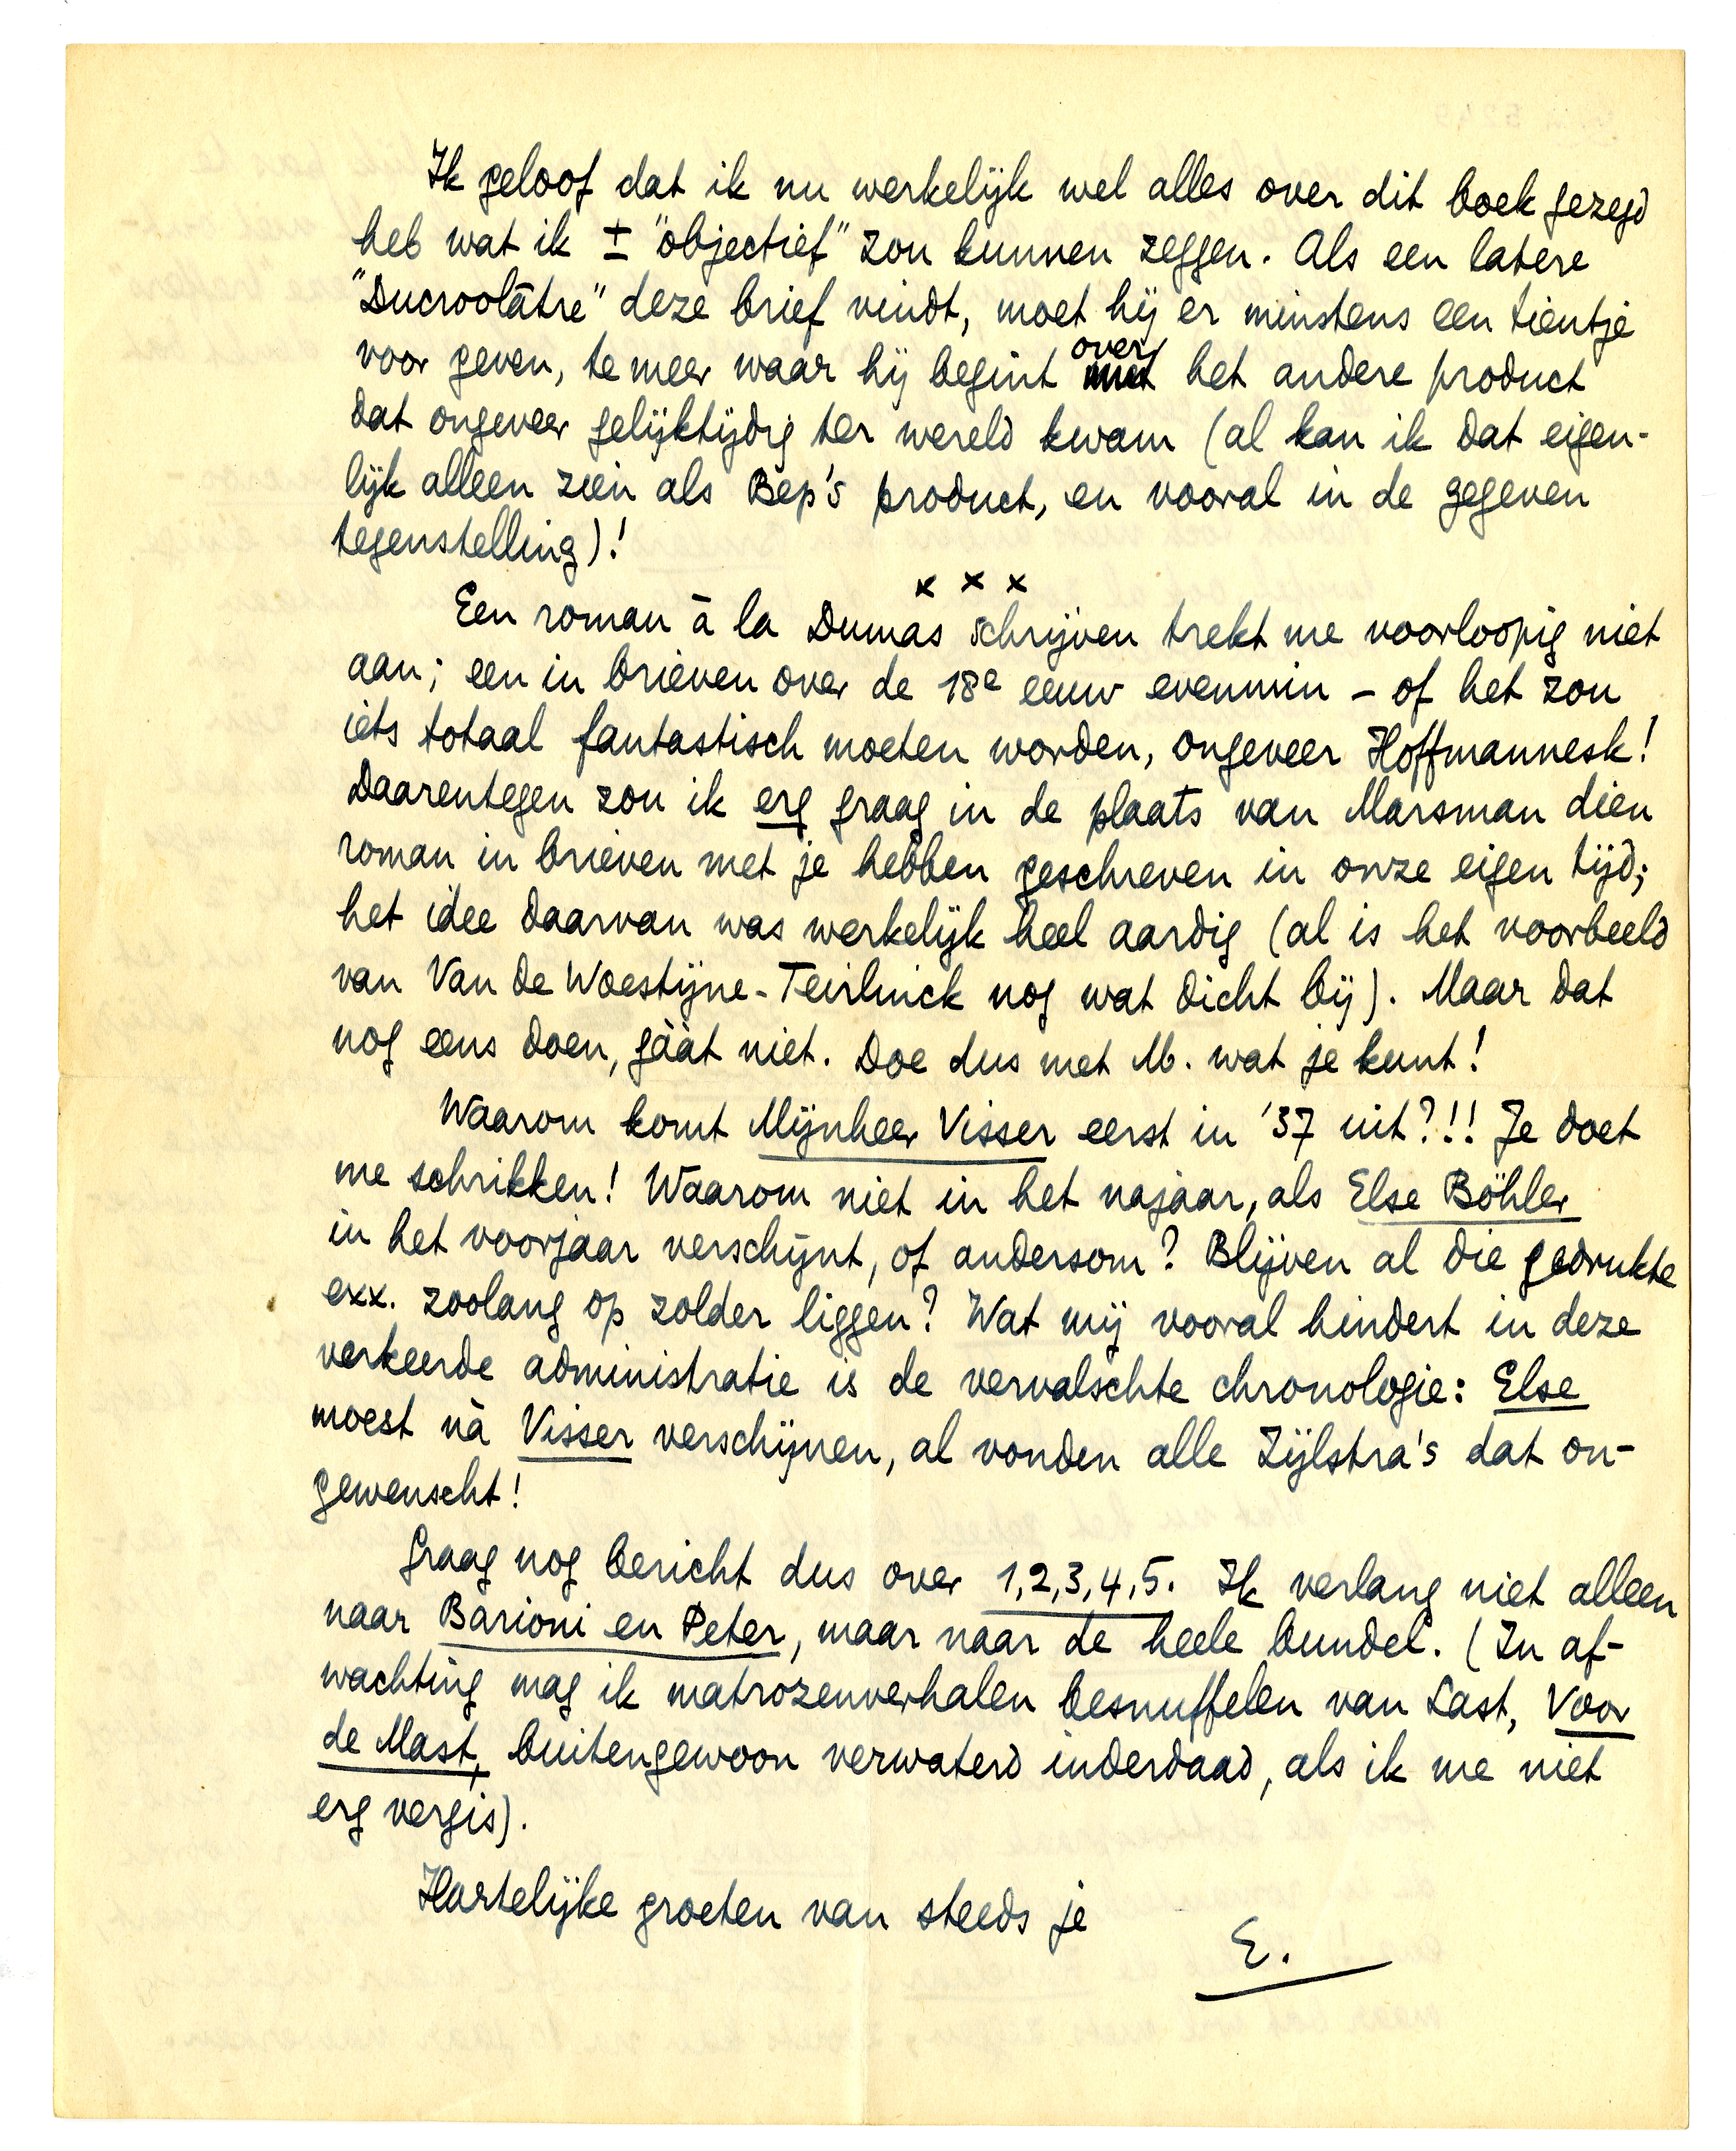 Ik geloof dat ik nu werkelijk wel alles over dit boek gezegd
heb wat ik ± "objectief" zou kunnen zeggen. Als een latere
"Ducroolâtre" deze brief vindt, moet hij er minstens een tientje
voor geven, te meer waar hij begint over het andere product
dat ongeveer gelijktijdig ter wereld kwam (al kan ik dat eigen-
lijk alleen zien als Bep's product, en vooral in de gegeven
tegenstelling)!
x x x
Een roman à la Dumas schrijven trekt me voorloopig niet
aan; een in brieven over de 18e eeuw evenmin - of het zou
iets totaal fantastisch moeten worden, ongeveer Hoffmannesk!
Daarentegen zou ik erg graag in de plaats van Marsman dien
roman in brieven met je hebben geschreven in onze eigen tijd;
het idee daarvan was werkelijk heel aardig (al is het voorbeeld
van Van de Woestijne-Teirlinck nog wat dicht bij). Maar dat
nog eens doen, gààt niet. Doe dus met M. wat je kunt!
Waarom komt Mijnheer Visser eerst in '37 uit?!! Je doet
me schrikken! Waarom niet in het najaar, als Else Böhler
in het voorjaar verschijnt, of andersom? Blijven al die gedrukte
exx. zoolang op zolder liggen? Wat mij vooral hindert in deze
verkeerde administratie is de vervalschte chronologie: Else
moest nà Visser verschijnen, al vonden alle Zijlstra's dat on-
gewenscht!
Graag nog bericht dus over 1,2,3,4,5. Ik verlang niet alleen
naar Barioni en Peter, maar naar de heele bundel. (In af-
wachting mag ik matrozenverhalen besnuffelen van Last, Voor
de Mast, buitengewoon verwaterd inderdaad, als ik me niet
erg vergis).
Hartelijke groeten van steeds je
E.